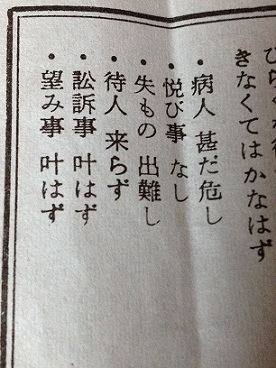 きなくてはかなはず
・病人 甚だ危し
・悦び事 なし
・失もの 出難し
・待人 来らず
・訟訴事 叶はず
・望み事 叶はず